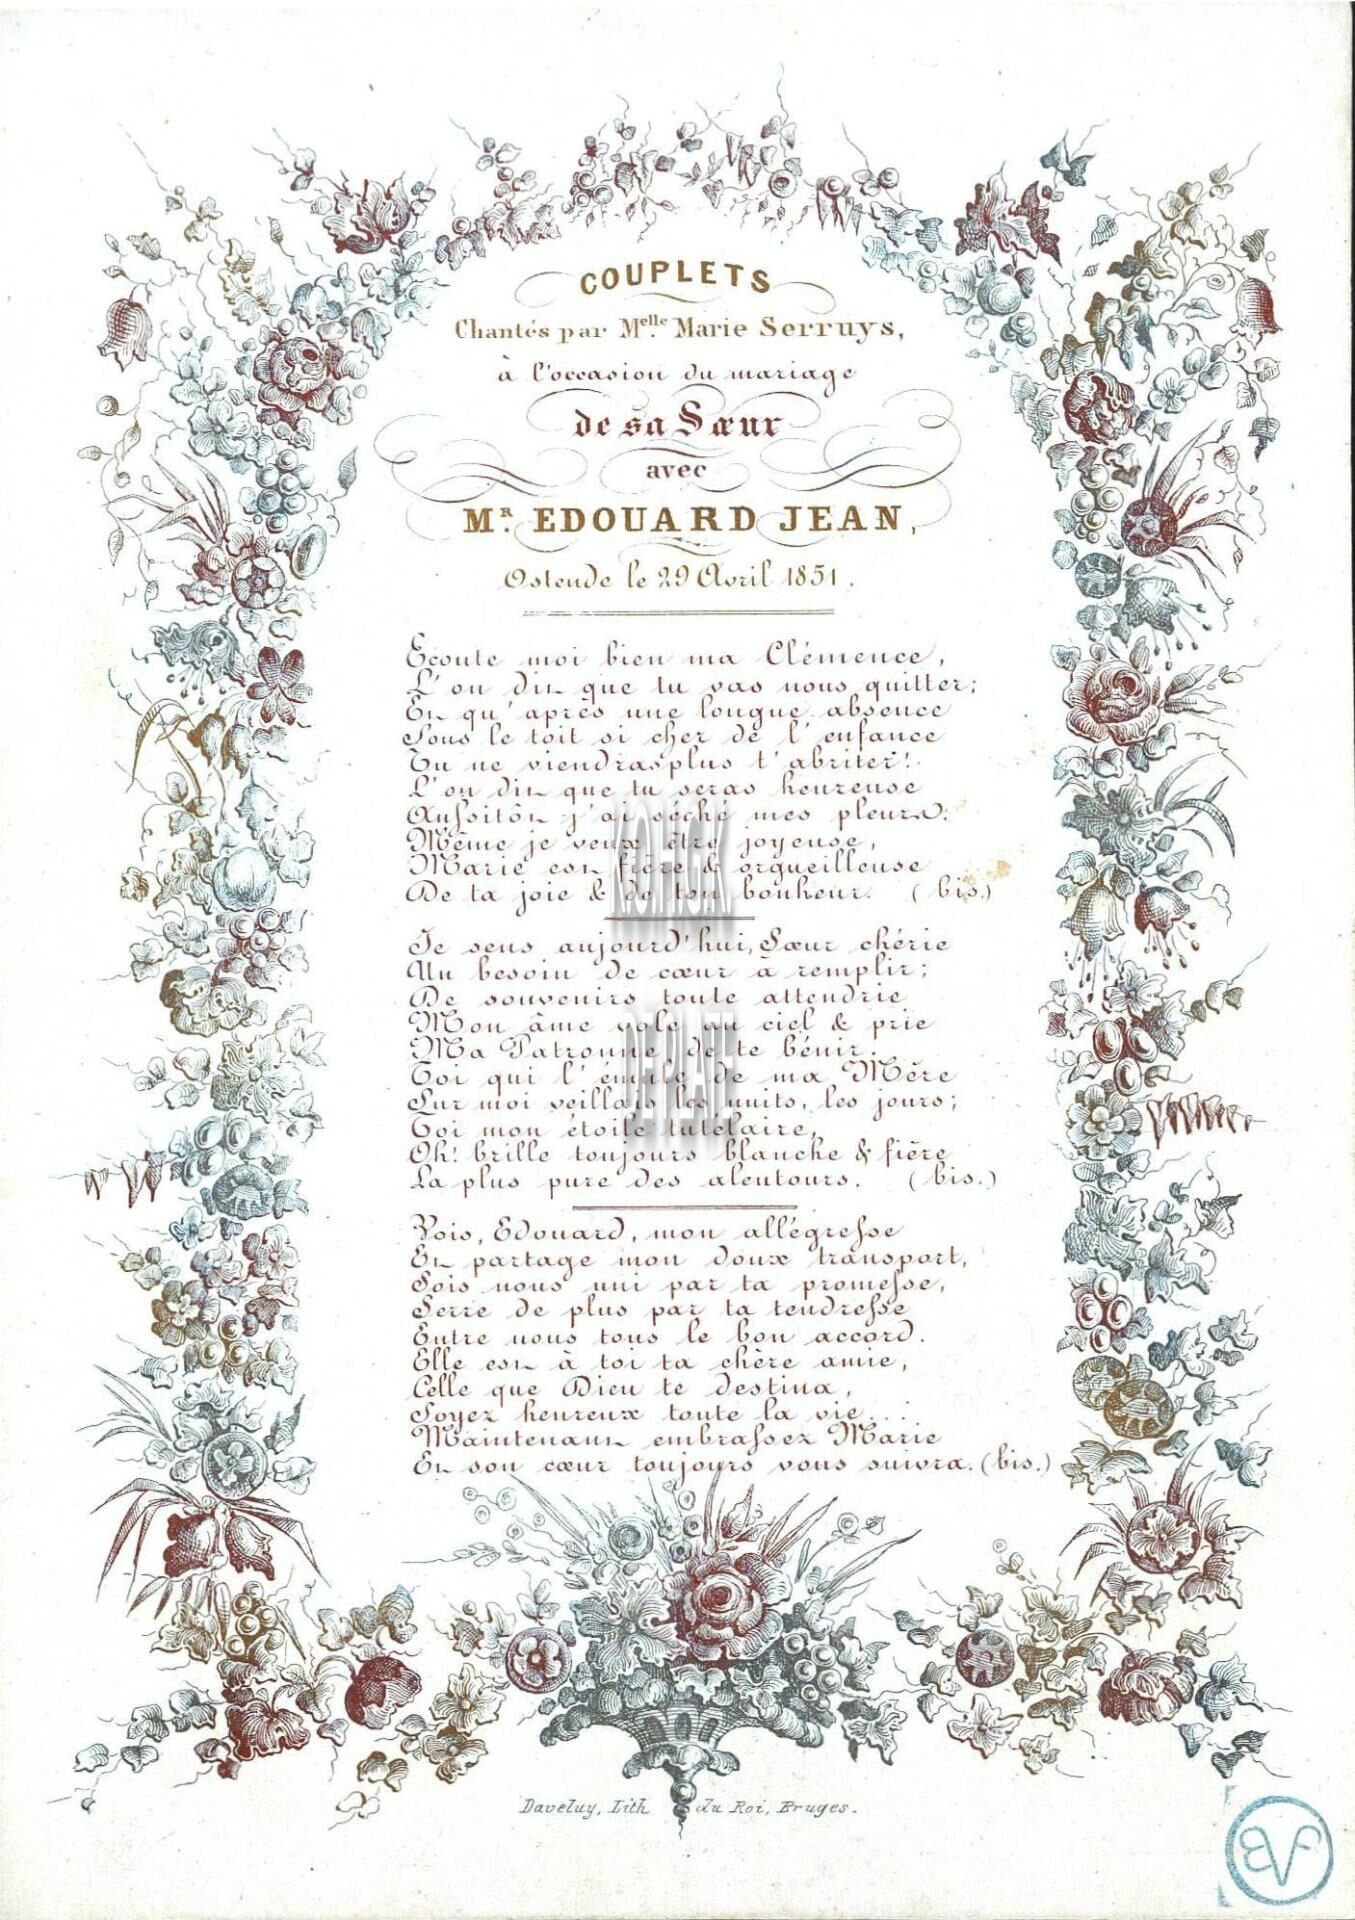 COUPLETS
Chantés par Melle. Marie Serruys,
à l'occasion du mariage
de sa Sœur
avec
MR. EDOUARD JEAN,
Ostende le 29 Avril 1851.
Ecoute moi bien ma Clémence,
L'on dit que tu vas nous quitter;
Et qu'après une longue absence
Sous le toit si cher de l'enfance
Tu ne viendras plus t'abriter!
L'on dit que tu seras heureuse
Aussitôt j'ai séché mes pleurs;
Même je veux être joyeuse,
Marie est fière & orgueilleuse
De ta joie & de ton bonheur. (bis.)
Je sens aujourd'hui, Sœur chérie
Un besoin de cœur à remplir;
De souvenirs toute attendrie
Mon âme vole au ciel & prie
Ma Patronne, de te bénir.
Toi qui l'émule de ma Mère
Sur moi veillais les nuits, les jours;
Toi mon étoile tutelaire,
Oh! brille toujours blanche & fière
La plus pure des alentours. (bis.)
Vois, Edouard, mon allégresse
Et partage mon doux transport,
Sois nous uni par ta promesse,
Serre de plus par ta tendresse
Entre nous tous le bon accord.
Elle est à toi ta chère amie,
Celle que Dieu te destina,
Soyez heureux toute la vie...
Maintenant embrassez Marie
Et son cœur toujours vous suivra. (bis.)
Daveluy, Lith du Roi, Bruges.
BVF